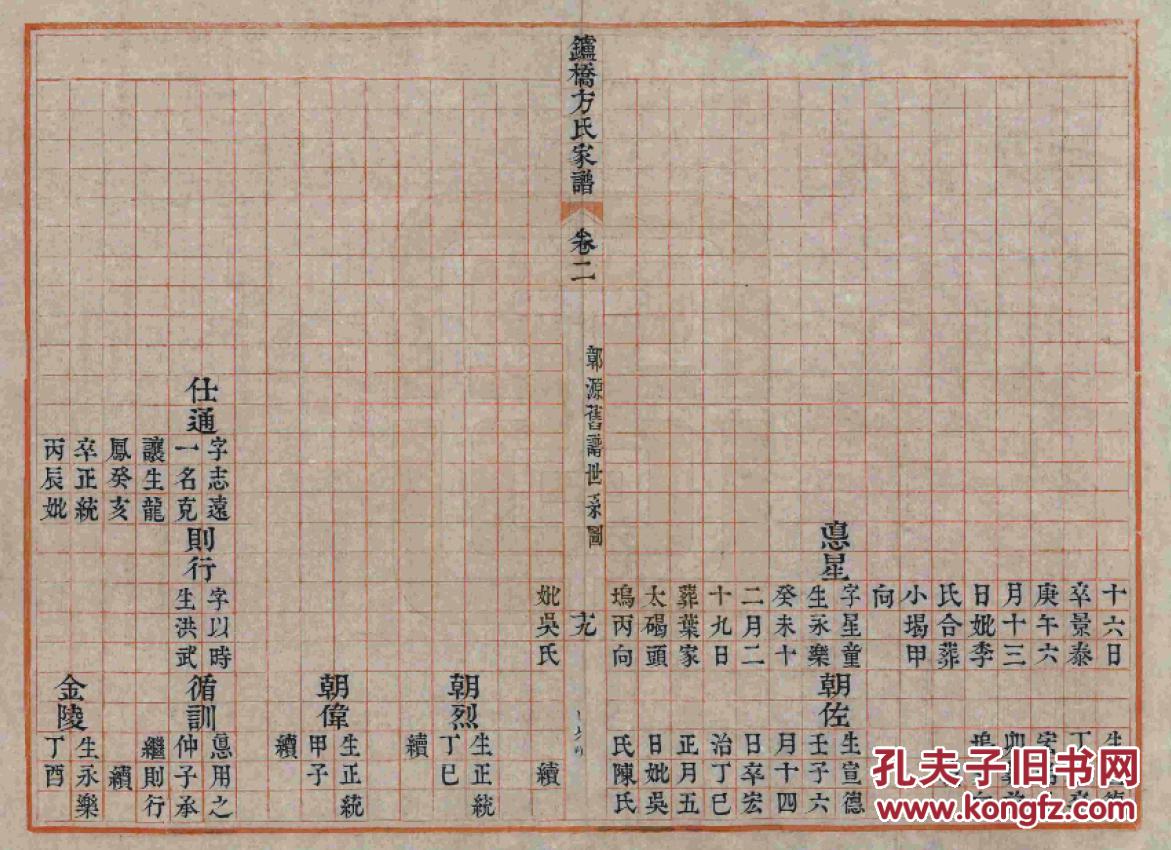 十六日
卒景泰
庚午六
月十三
日妣李
氏合葬
小堨甲
向
惪星
字星童
生永樂
癸未十
二月二
十九日
葬葉家
太碣頭
塢丙向
朝佐
生宣德
壬子六
月十四
日卒宏
治丁巳
正月五
日妣吳
氏陳氏
鑪橋方氏家譜
卷二
鄣源舊譜世系圖
十九
妣吳氏
續
朝烈
生正統
丁巳
續
朝偉
生正統
甲子
續
仕通
字志遠
一名克
讓生龍
鳳癸亥
卒正統
丙辰妣
則行
字以時
生洪武
循訓
惪用之
仲子承
繼則行
續
金陵
生永樂
丁酉
孔夫子旧书网
www.kongfz.com